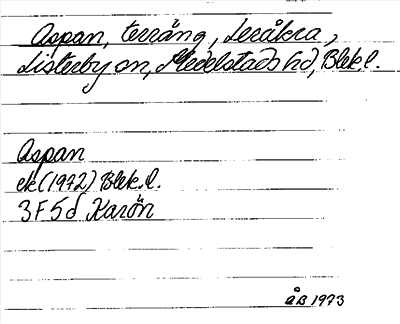 Aspan, terräng, Leråkra,
Listerby sn, Medelstads hd, Blek.l.
Aspan
ek (1972) Blek.l.
3F5d Karön
ÅB 1973